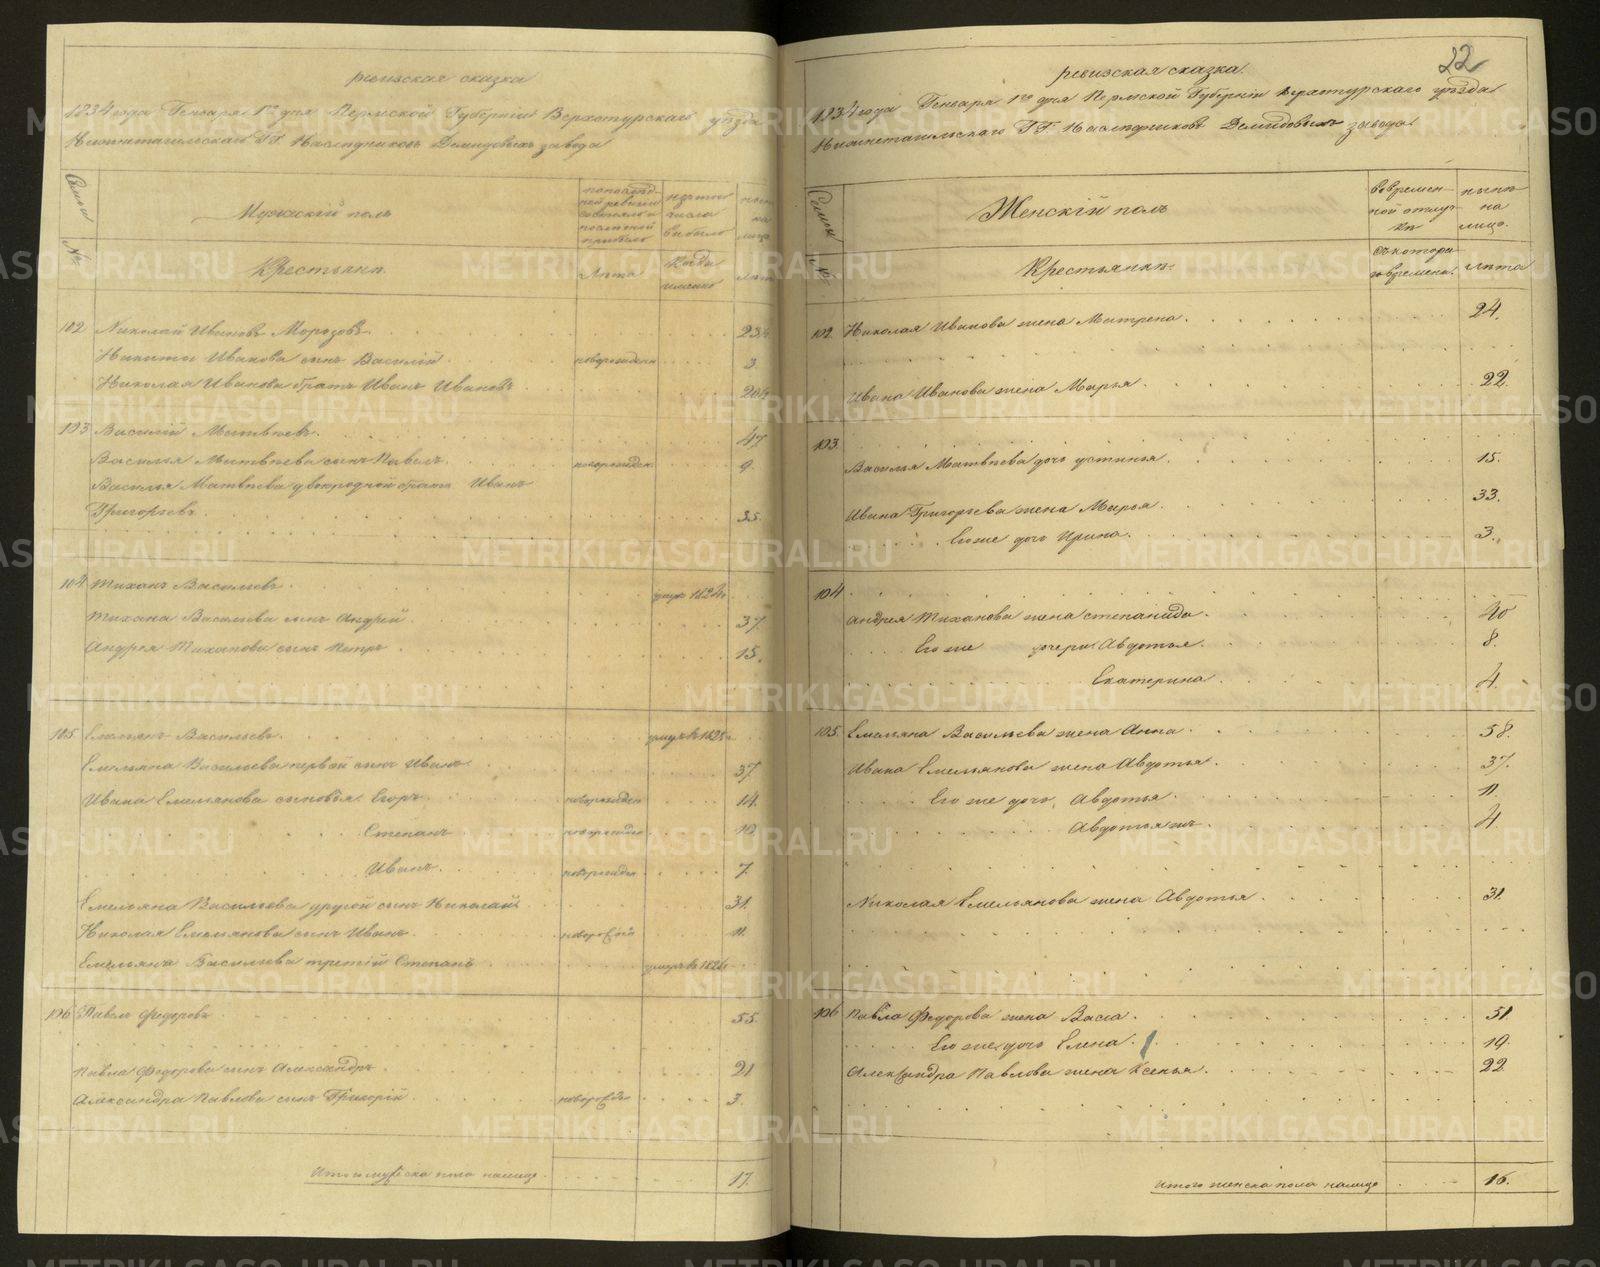 ревизская сказка
1834 года Генваря 1го дня Пермской Губернiи Верхотурскаго уѣзда
Нижнетагильскаго ГГ. Наслѣдниковъ Демидовыхъ завода
Семьи
№
Мужескiй полъ
Крестьяне.
лѣта
Когда именно
лѣта
102 Николай Ивановъ Морозовъ. 23½
Никиты Иванова сынъ Василiй новорожден 3
Николая Иванова братъ Иванъ Ивановъ 20½
103 Василiй Матвѣевъ. 47
Василья Матвѣева сынъ Павелъ. новорожден. 9
Василья Матвѣева двоюродной братъ Иванъ
Григорьевъ. 35.
104 Тиханъ Васильевъ. умре 1824
Тихана Васильева сынъ Андрей 37.
Андрея Тиханова сынъ Петръ 15.
105 Емельянъ Васильевъ.
Емельяна Васильева первой сынъ Иванъ 37
Ивана Емельянова сыновья Егоръ новорожден 14.
Степанъ новорожден 10.
Иванъ. новорожден 7.
Емельяна Васильева другой сынъ Николай 31.
Николая Емельянова сынъ Иванъ 11.
Емельяна Васильева третiй Степанъ
106 Павелъ Федоровъ 55.
Павла Федорова сынъ Александръ. 21
Александра Павлова сынъ Григорiй 3.
Итого мужеска пола налице. 17.
22
ревизская сказка.
1834 года Генваря 1го дня Пермской Губернiи Верхотурскаго уѣзда
Нижнетагильскаго ГГ. Наслѣдниковъ Демидовыхъ завода
Семьи
№
Женскiй полъ
во времен-
ной отлуч-
ке
нынѣ
на
лицо.
Крестьянки.
съ котора-
го времени.
лѣта
102. Николая Иванова жена Матрена. 24.
Ивана Иванова жена Марья. 22.
103.
Василья Матвѣева дочь Устинья. 15.
Ивана Григорьева жена Марья. 33.
Его же дочь Ирина. 3.
104
Андрея Тиханова жена Степанида. 40
Его же дочери Авдотья. 8.
Екатерина 4.
105. Емельяна Васильева жена Анна. 58.
Ивана Емельянова жена Авдотья. 37.
Его же дочь, Авдотья. 11.
Авдотья жъ. 4.
Николая Емельянова жена Авдотья 31.
106 Павла Федорова жена Васса. 51.
Его же дочь Елена. 19.
Александра Павлова жена Ксенья. 22
Итого женска пола налице 16.
METRIKI.GASO-URAL.RU